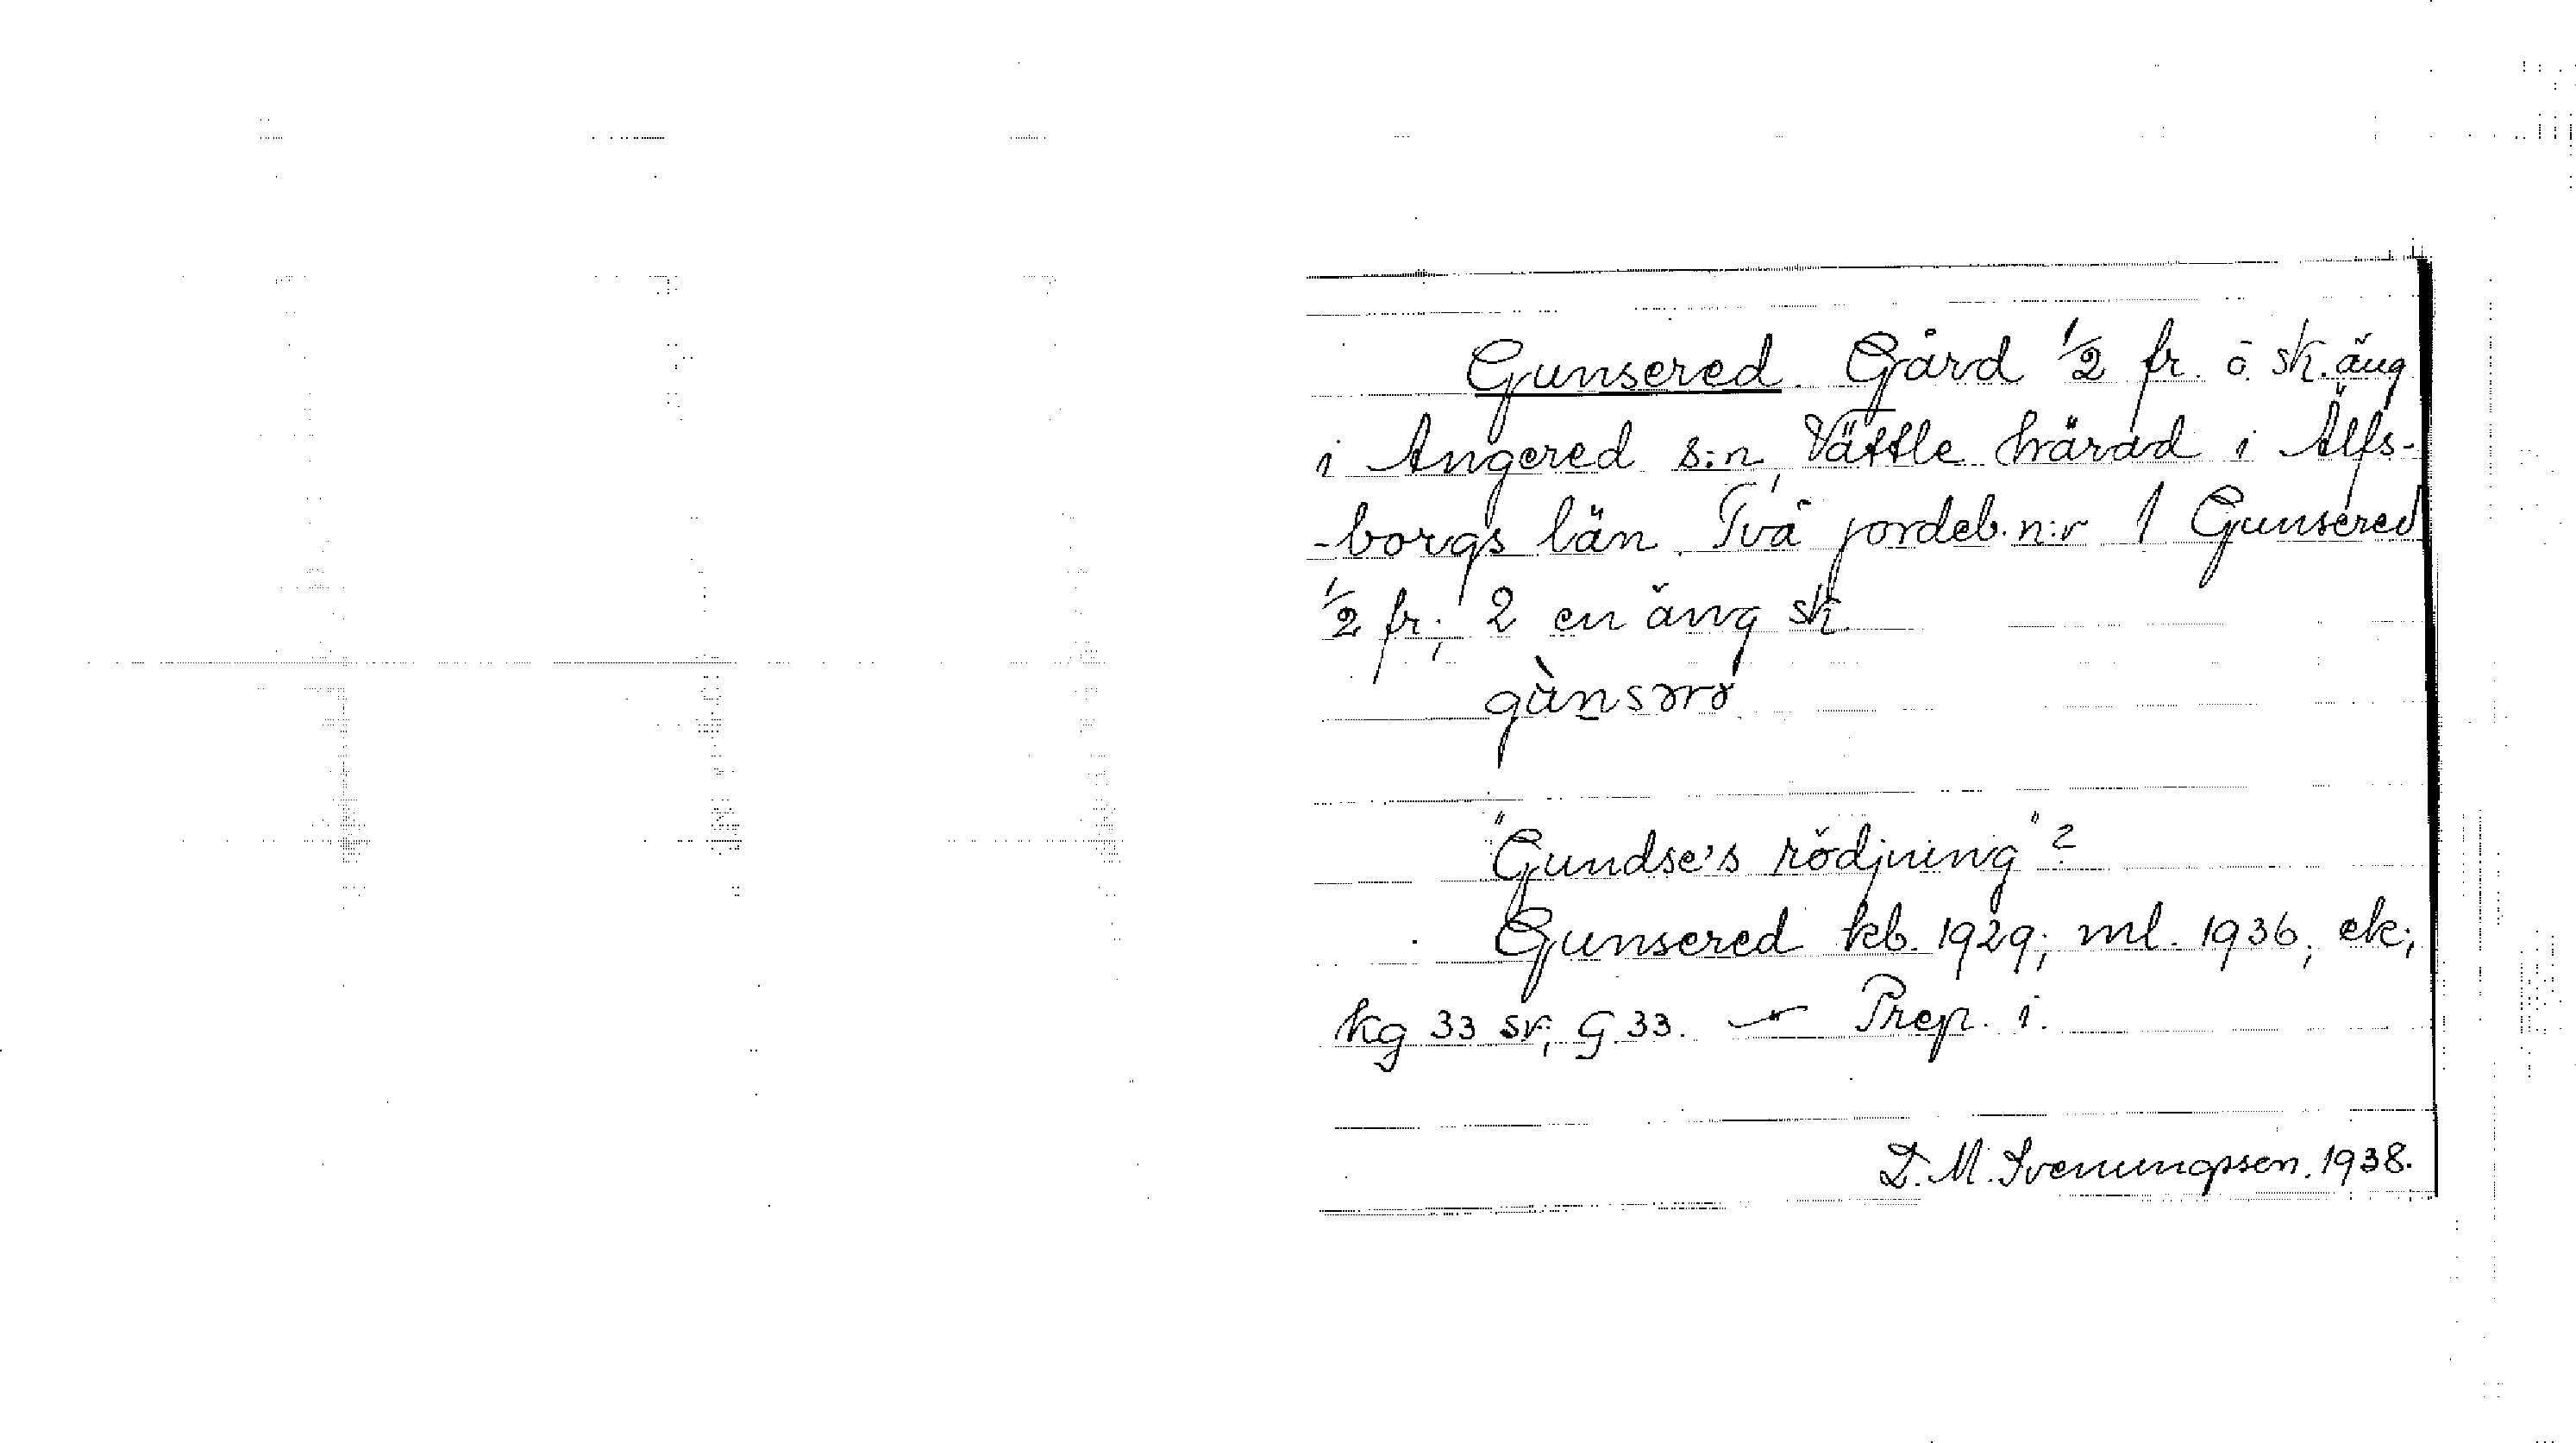 Gunsered. Gård 1/2 fr. o. sk. äng
i Angered s:n, Vättle härad i Älfs-
-borgs län. Två jordeb. n:r 1 Gunsered
1/2 fr.; 2 en äng sk.
"Gundse's rödjning"?
Gunsered kb. 1929; ml. 1936; ek;
kg 33 sv; G 33. — Prep. i.
D. M. Svenungsson. 1938.